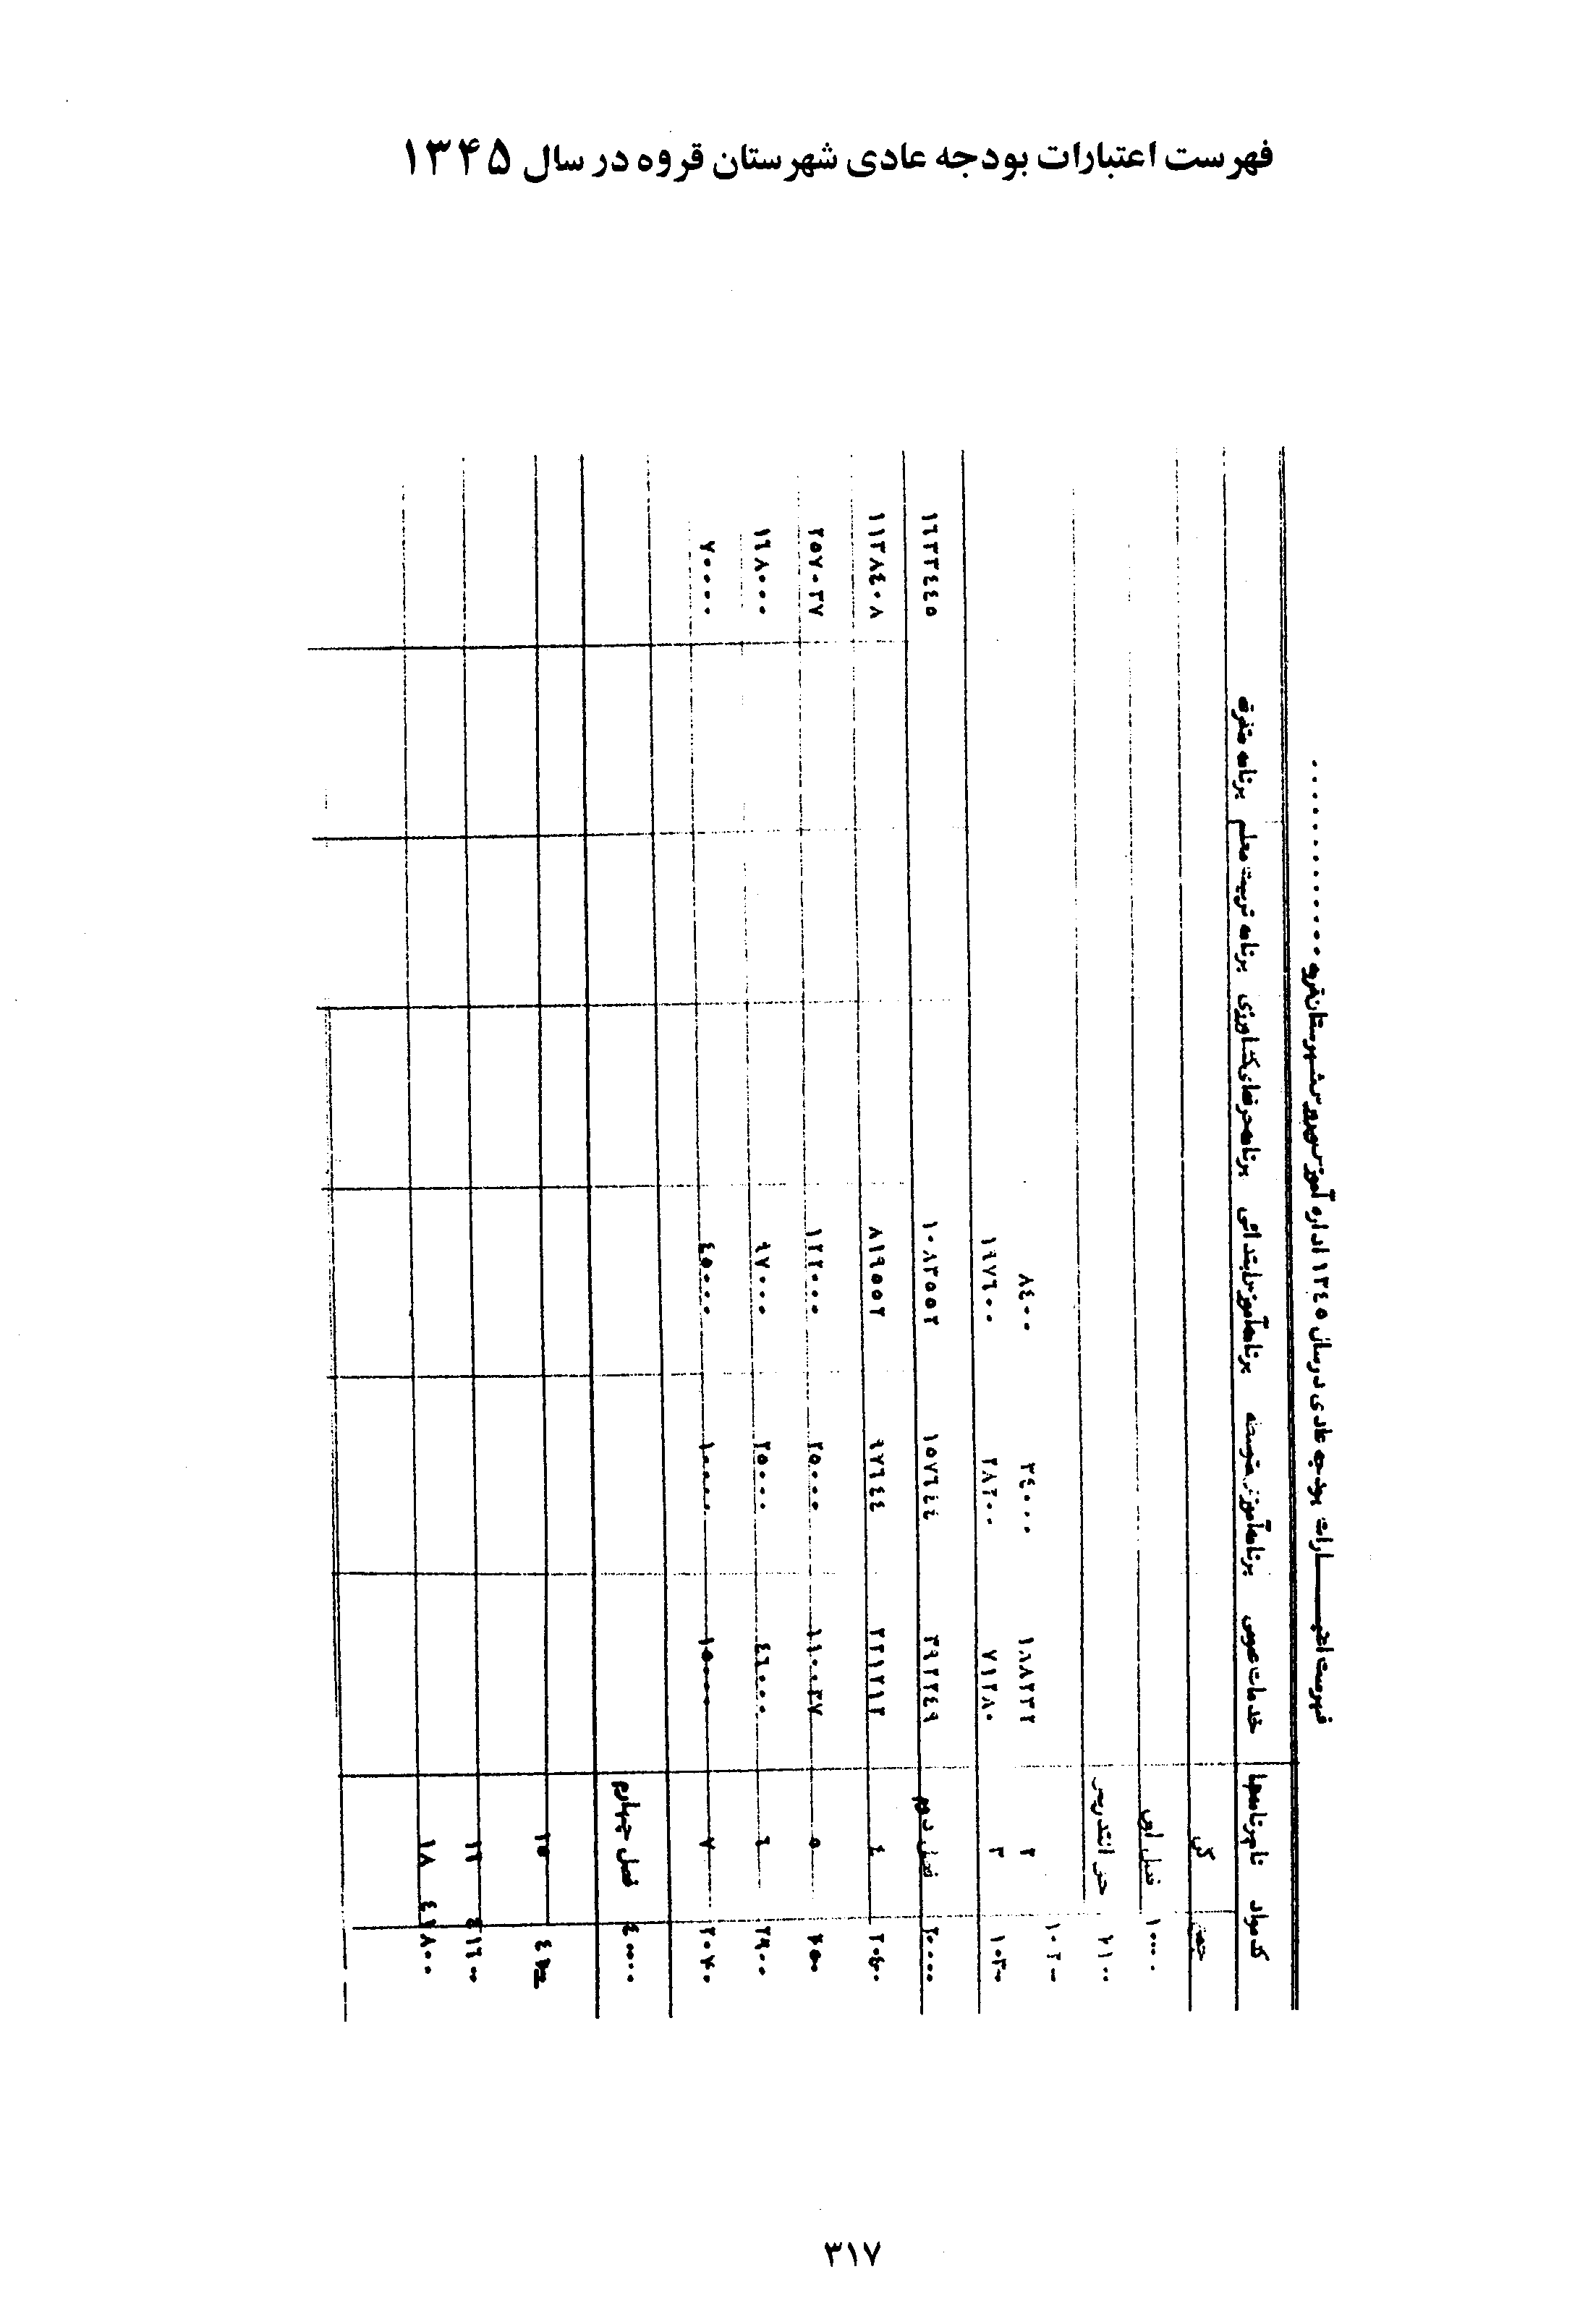 فهرست اعتبارات بودجه عادی شهرستان قروه در سال ۱۳۴۵
فهرست اعتبـــارات بودجه عادی در سال ۱۳٤٥ اداره آموزش و پرورش شهرستان قروه ............
کد مواد نام برنامه‌ها خدمات عمومی برنامه آموزش متوسطه برنامه آموزش ابتدائی برنامه حرفه‌ای کشاورزی برنامه تربیت معلم برنامه متفرقه
جمع کل
۱۰۰۰۰ فصل اول
۱۰۲۰۰ ۲ ۲٤۰۰۰ ۸٤۰۰
۱۰۳۰۰ ۳ ۷۱۲۸۰ ۲۸۲۰۰ ۱۹۷٦۰۰
۲۰۰۰۰ فصل دوم ۳۹۲۲٤۹ ۱٥۷٦٤٤ ۱۰۸۳٥٥۲ ۱٦۳۳٤٤٥
۲۰٤۰۰ ٤ ۲۲۱۲۱۲ ۹۷٦٤٤ ۸۱۹٥٥۲ ۱۱۳۸٤۰۸
٥ ۱۱۰۰۳۷ ۲٥۰۰۰ ۱۲۲۰۰۰ ۲٥۷۰۳۷
٦ ٤٦۰۰۰ ۲٥۰۰۰ ۹۷۰۰۰ ۱٦۸۰۰۰
۲۰۷۰ ۷ ۱٥۰۰۰ ۱۰۰۰۰ ٤٥۰۰۰ ۷۰۰۰۰
٤۰۰۰۰ فصل چهارم
٤۱۸۰۰ ۱۸
۳۱۷